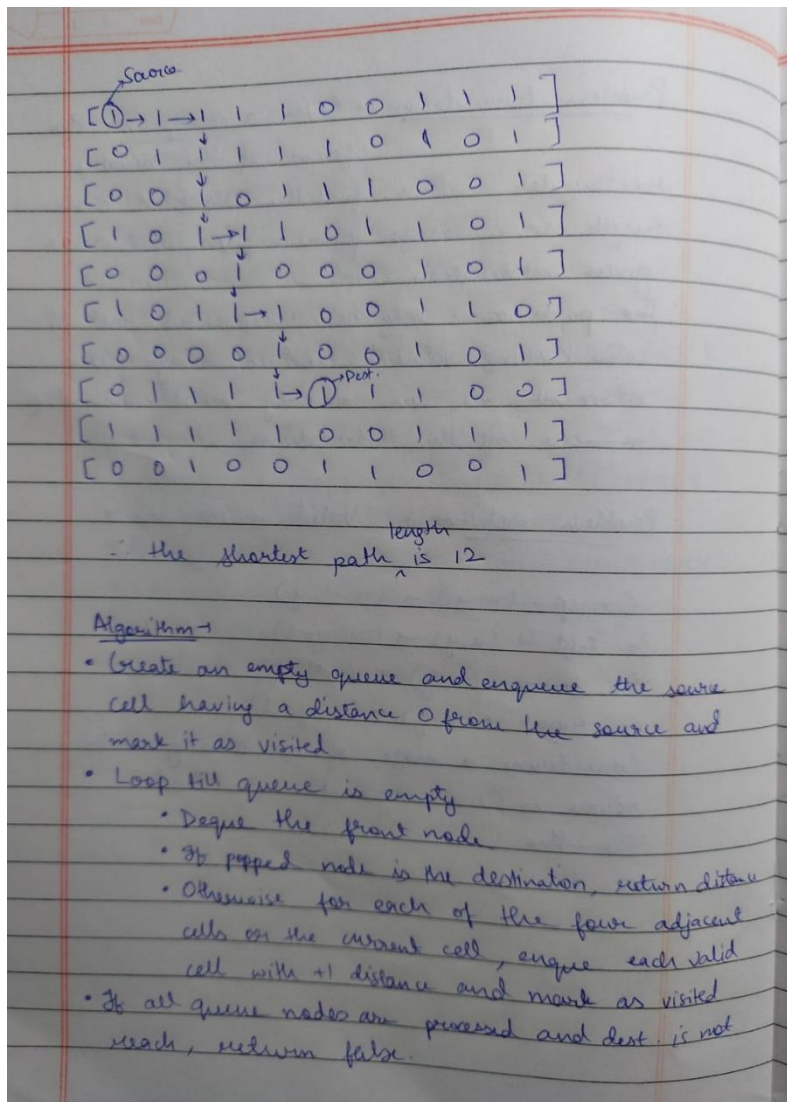 Source
[ 1 → 1 → 1 1 1 0 0 1 1 1 ]
[ 0 1 1 1 1 1 0 1 0 1 ]
[ 0 0 1 0 1 1 1 0 0 1 ]
[ 1 0 1 → 1 1 0 1 1 0 1 ]
[ 0 0 0 1 0 0 0 1 0 1 ]
[ 1 0 1 1 → 1 0 0 1 1 0 ]
[ 0 0 0 0 1 0 0 1 0 1 ]
[ 0 1 1 1 1 → 1 → Dest. 1 1 0 0 ]
[ 1 1 1 1 1 0 0 1 1 1 ]
[ 0 0 1 0 0 1 1 0 0 1 ]
∴ the shortest path length is 12
Algorithm →
• Create an empty queue and enqueue the source
cell having a distance 0 from the source and
mark it as visited
• Loop till queue is empty
• Deque the front node
• If popped node is the destination, return distance
• Otherwise for each of the four adjacent
cells or the current cell, enque each valid
cell with +1 distance and mark as visited
• If all queue nodes are processed and dest. is not
reach, return false.